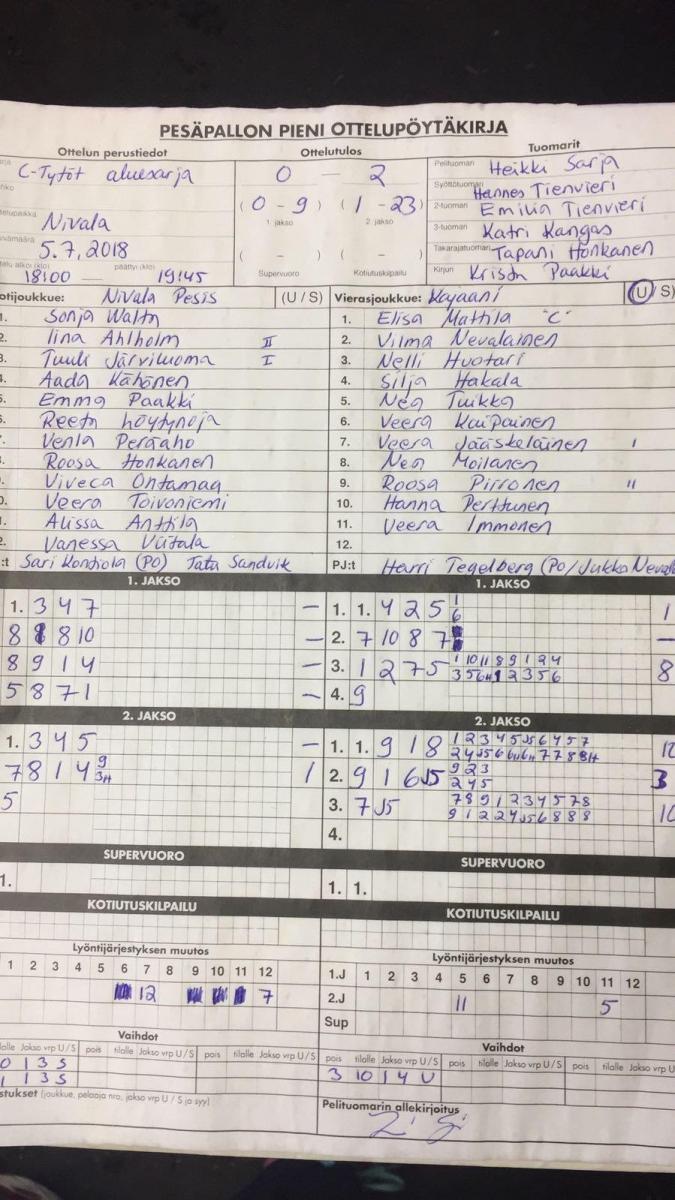 PESÄPALLON PIENI OTTELUPÖYTÄKIRJA
Ottelun perustiedot
Ottelutulos
Tuomarit
C-Tytöt aluesarja
0 — 2
(0 - 9) (1 - 23)
1. jakso 2. jakso
( - ) ( - )
Supervuoro Kotiutuskilpailu
Nivala
5.7.2018
18:00 päättyi (klo) 19:45
Pelituomari Heikki Sarja
Syöttötuomari Hannes Tienvieri
2-tuomari Emilia Tienvieri
3-tuomari Katri Kangas
Takarajatuomari Tapani Honkanen
Kirjuri Krista Paakki
otijoukkue: Nivala Pesis (U / S)
Sonja Walta
Iina Ahlholm II
Tuuli Järviluoma I
Aada Kähönen
Emma Paakki
Reeta Höytynoja
Venla Peräaho
Roosa Honkanen
Viveca Ontamaa
Veera Toivoniemi
Alissa Anttila
Vanessa Viitala
:t Sari Kontiola (PO) Tatu Sandvik
Vierasjoukkue: Kajaani (U / S)
1. Elisa Mattila "C"
2. Vilma Nevalainen
3. Nelli Huotari
4. Silja Hakala
5. Nea Tuikka
6. Veera Kaipainen
7. Veera Jääskeläinen I
8. Nea Moilanen
9. Roosa Pirronen II
10. Hanna Perttunen
11. Veera Immonen
12.
PJ:t Harri Tegelberg (PO/Jukka Neval
1. JAKSO
1. 3 4 7 –
8 8 10 –
8 9 1 4 –
5 8 7 1 –
1. JAKSO
1. 1. 4 2 5 1 6 1
2. 7 10 8 7 –
3. 1 2 7 5 1 10 11 8 9 1 2 4 8
4. 9
2. JAKSO
1. 3 4 5 –
7 8 1 4 9 3H 1
5
2. JAKSO
1. 1. 9 1 8 1 2 3 4 5 J5 6 4 5 7
2. 9 1 6 J5 9 2 3 3
2 4 5
3. 7 J5 7 8 9 1 2 3 4 5 7 8
9 1 2 2 4 J5 6 8 8 8
4.
SUPERVUORO
1.
SUPERVUORO
1. 1.
KOTIUTUSKILPAILU
KOTIUTUSKILPAILU
Lyöntijärjestyksen muutos
1 2 3 4 5 6 7 8 9 10 11 12
12 7
Lyöntijärjestyksen muutos
1.J 1 2 3 4 5 6 7 8 9 10 11 12
2.J 11 5
Sup
Vaihdot
tilalle Jakso vrp U / S pois tilalle Jakso vrp U / S pois tilalle Jakso vrp U / S
0 1 3 S
1 1 3 S
Vaihdot
pois tilalle Jakso vrp U / S pois tilalle Jakso vrp U / S pois tilalle Jakso vrp U
3 10 1 4 U
stukset (joukkue, pelaaja nro, jakso vrp U / S ja syy)
Pelituomarin allekirjoitus